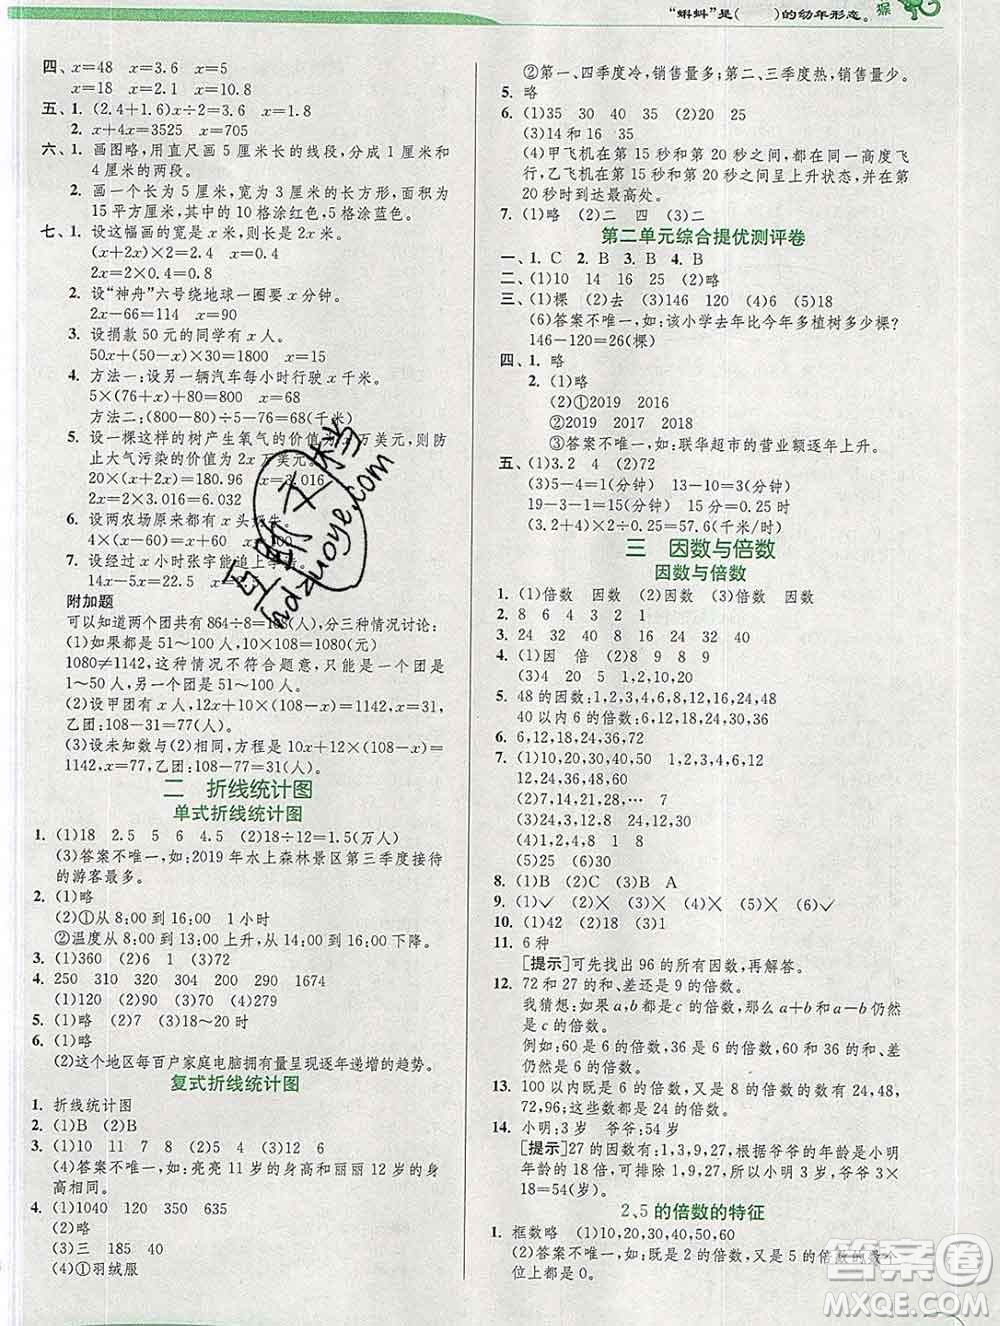 “蝌蚪”是(　　)的幼年形态。
四、x=48　x=3.6　x=5
x=18　x=2.4　x=10.8
五、1. (2.4+1.6)x÷2=3.6　x=1.8
2. x+4x=3525　x=705
六、1. 画图略,用直尺画 5 厘米长的线段,分成 1 厘米和
4 厘米的两段。
2. 画一个长为 5 厘米,宽为 3 厘米的长方形,面积为
15 平方厘米,其中的 10 格涂红色,5 格涂蓝色。
七、1. 设这幅画的宽是 x 米。
(x+2x)×2=12　x=2
2x=2×2=4
2. 设“神舟”六号绕地球一圈要 x 分钟。
2x-66=114　x=90
3. 设捐款 50 元的同学有 x 人。
50x+(50-x)×30=1800　x=15
4. 方法一:设另一辆汽车每小时行驶 x 千米。
5×(76+x)=800-80　x=68
方法二:(800-80)÷5-76=68(千米)
5. 设一棵这样的树产生氧气的价值为 x 万美元,则防
止大气污染的价值为 2x 万美元。
20×(x+2x)=180.96　x=3.016
2x=2×3.016=6.032
6. 设两农场原来都有 x 头奶牛。
4×(x-60)=x+60　x=100
7. 设经过 x 小时张宇能追上李浩。
14x-5x=22.5　x=2.5
附加题
可以知道两个团共有 864÷8=108(人),分三种情况讨论:
(1)如果都是 51～100 人,10×108=1080(元)
1080≠1142,这种情况不符合题意,只能是一个团是
51～100 人,另一个团是 1～50 人。
(2)设甲团有 x 人,12x+10×(108-x)=1142,x=31,
乙团:108-31=77(人)。
(3)设未知数与(2)相同,方程是 10x+12×(108-x)=
1142,x=77,乙团:108-77=31(人)。
二　折线统计图
单式折线统计图
1. (1)18　2.5　5　6　4.5　(2)18÷12=1.5(万人)
(3)答案不唯一,如:2019 年水上森林景区第三季度接待
的游客最多。
2. (1)略
(2)①从 8:00 到 16:00　1 小时
②温度从 8:00 到 13:00 上升,从 13:00 到 16:00 下降。
3. (1)360　(2)1　(3)72
4. 250　310　320　304　200　290　1674
(1)120　(2)70　(3)90　(4)279
5. (1)略　(2)7　(3)18～20 时
6. (1)略
(2)这个地区每百户家庭电脑拥有量呈现逐年递增的趋势。
复式折线统计图
1. 折线统计图
2. (1)B　(2)B
3. (1)10　11　7　8　(2)5　4　(3)12　6
(4)答案不唯一,如:亮亮 11 岁的身高和丽丽 12 岁的身
高相同。
4. (1)1040　120　200　635
(2)略
(3)三　185　40
(4)①羽绒服
②第一、四季度冷,销售量多;第二、三季度热,销售量少。
5. 略
6. (1)35　30　40　35　(2)20　25
(3)14和16　35
(4)甲飞机在第 15 秒和第 20 秒之间,都在同一高度飞
行,乙飞机在第 15 秒和第 20 秒之间呈上升状态,并在第
20 秒时到达最高处。
7. (1)略　(2)二　四　(3)二
第二单元综合提优测评卷
一、1. C　2. B　3. B　4. B
二、(1)10　14　16　25　(2)略
三、(1)棵　(2)去　(3)146　120　(4)6　(5)18
(6)答案不唯一,如:该小学去年比今年多植树多少棵?
146-120=26(棵)
四、1. 略
2. (1)略
(2)①2019　2016
②2019　2017　2018
③答案不唯一,如:联华超市的营业额逐年上升。
五、(1)3.2　4　(2)72
(3)5-4=1(分钟)　13-10=3(分钟)
19-3-1=15(分钟)　15 分=0.25 时
(3.2+4)×2÷0.25=57.6(千米/时)
三　因数与倍数
因数与倍数
1. (1)倍数　因数　(2)因数　(3)倍数　因数
2. 8　6　4　3　2　1
3. 24　32　40　16　48
4. (1)因　倍　(2)18　9　5
(3)4　20　5　1,2,10,20
5. 48 的因数:1,2,3,4,6,8,12,16,24,48
40 以内 6 的倍数:6,12,18,24,30,36
6. 6,12,18,24,36,72
7. (1)1,2,4,8,16　4　1,2,3,4,6,12
12,24,36,48,60
(2)7,14,21,28,…　7
(3)24,4,8,12,6
(4)1,2,4,8　1　8
(5)25　(6)30
8. (1)B　(2)C　(3)B　A
9. (1)✓　(2)✕　(3)✕　(4)✕　(5)✕　(6)✓
10. (1)42　(2)18　(3)1
11. 6 种
[提示]可先找出 96 的所有因数,再解答。
12. 72 和 27 的和、差还是 9 的倍数。
我猜想:如果 a,b 都是 c 的倍数,那么 a+b 和 a-b 仍然
是 c 的倍数。
例如:60 是 6 的倍数,30 是 6 的倍数,60 和 30 的和、差
仍然是 6 的倍数。
13. 100 以内既是 6 的倍数,又是 8 的倍数的数有 24,48,
72,96;这些数都是 24 的倍数。
14. 小明:3 岁　爷爷:54 岁
[提示]27 的因数有:1,3,9,27,根据爷爷的年龄是小明
年龄的 18 倍,可排除 1,9,27,所以小明 3 岁,爷爷 3×
18=54(岁)。
2、5 的倍数的特征
1. 框数略　(1)10,20,30,40,50,60
(2)答案不唯一,如:既是 2 的倍数,又是 5 的倍数的数个
位上都是 0。
答案圈
MXQE.COM
hdzuoye.com